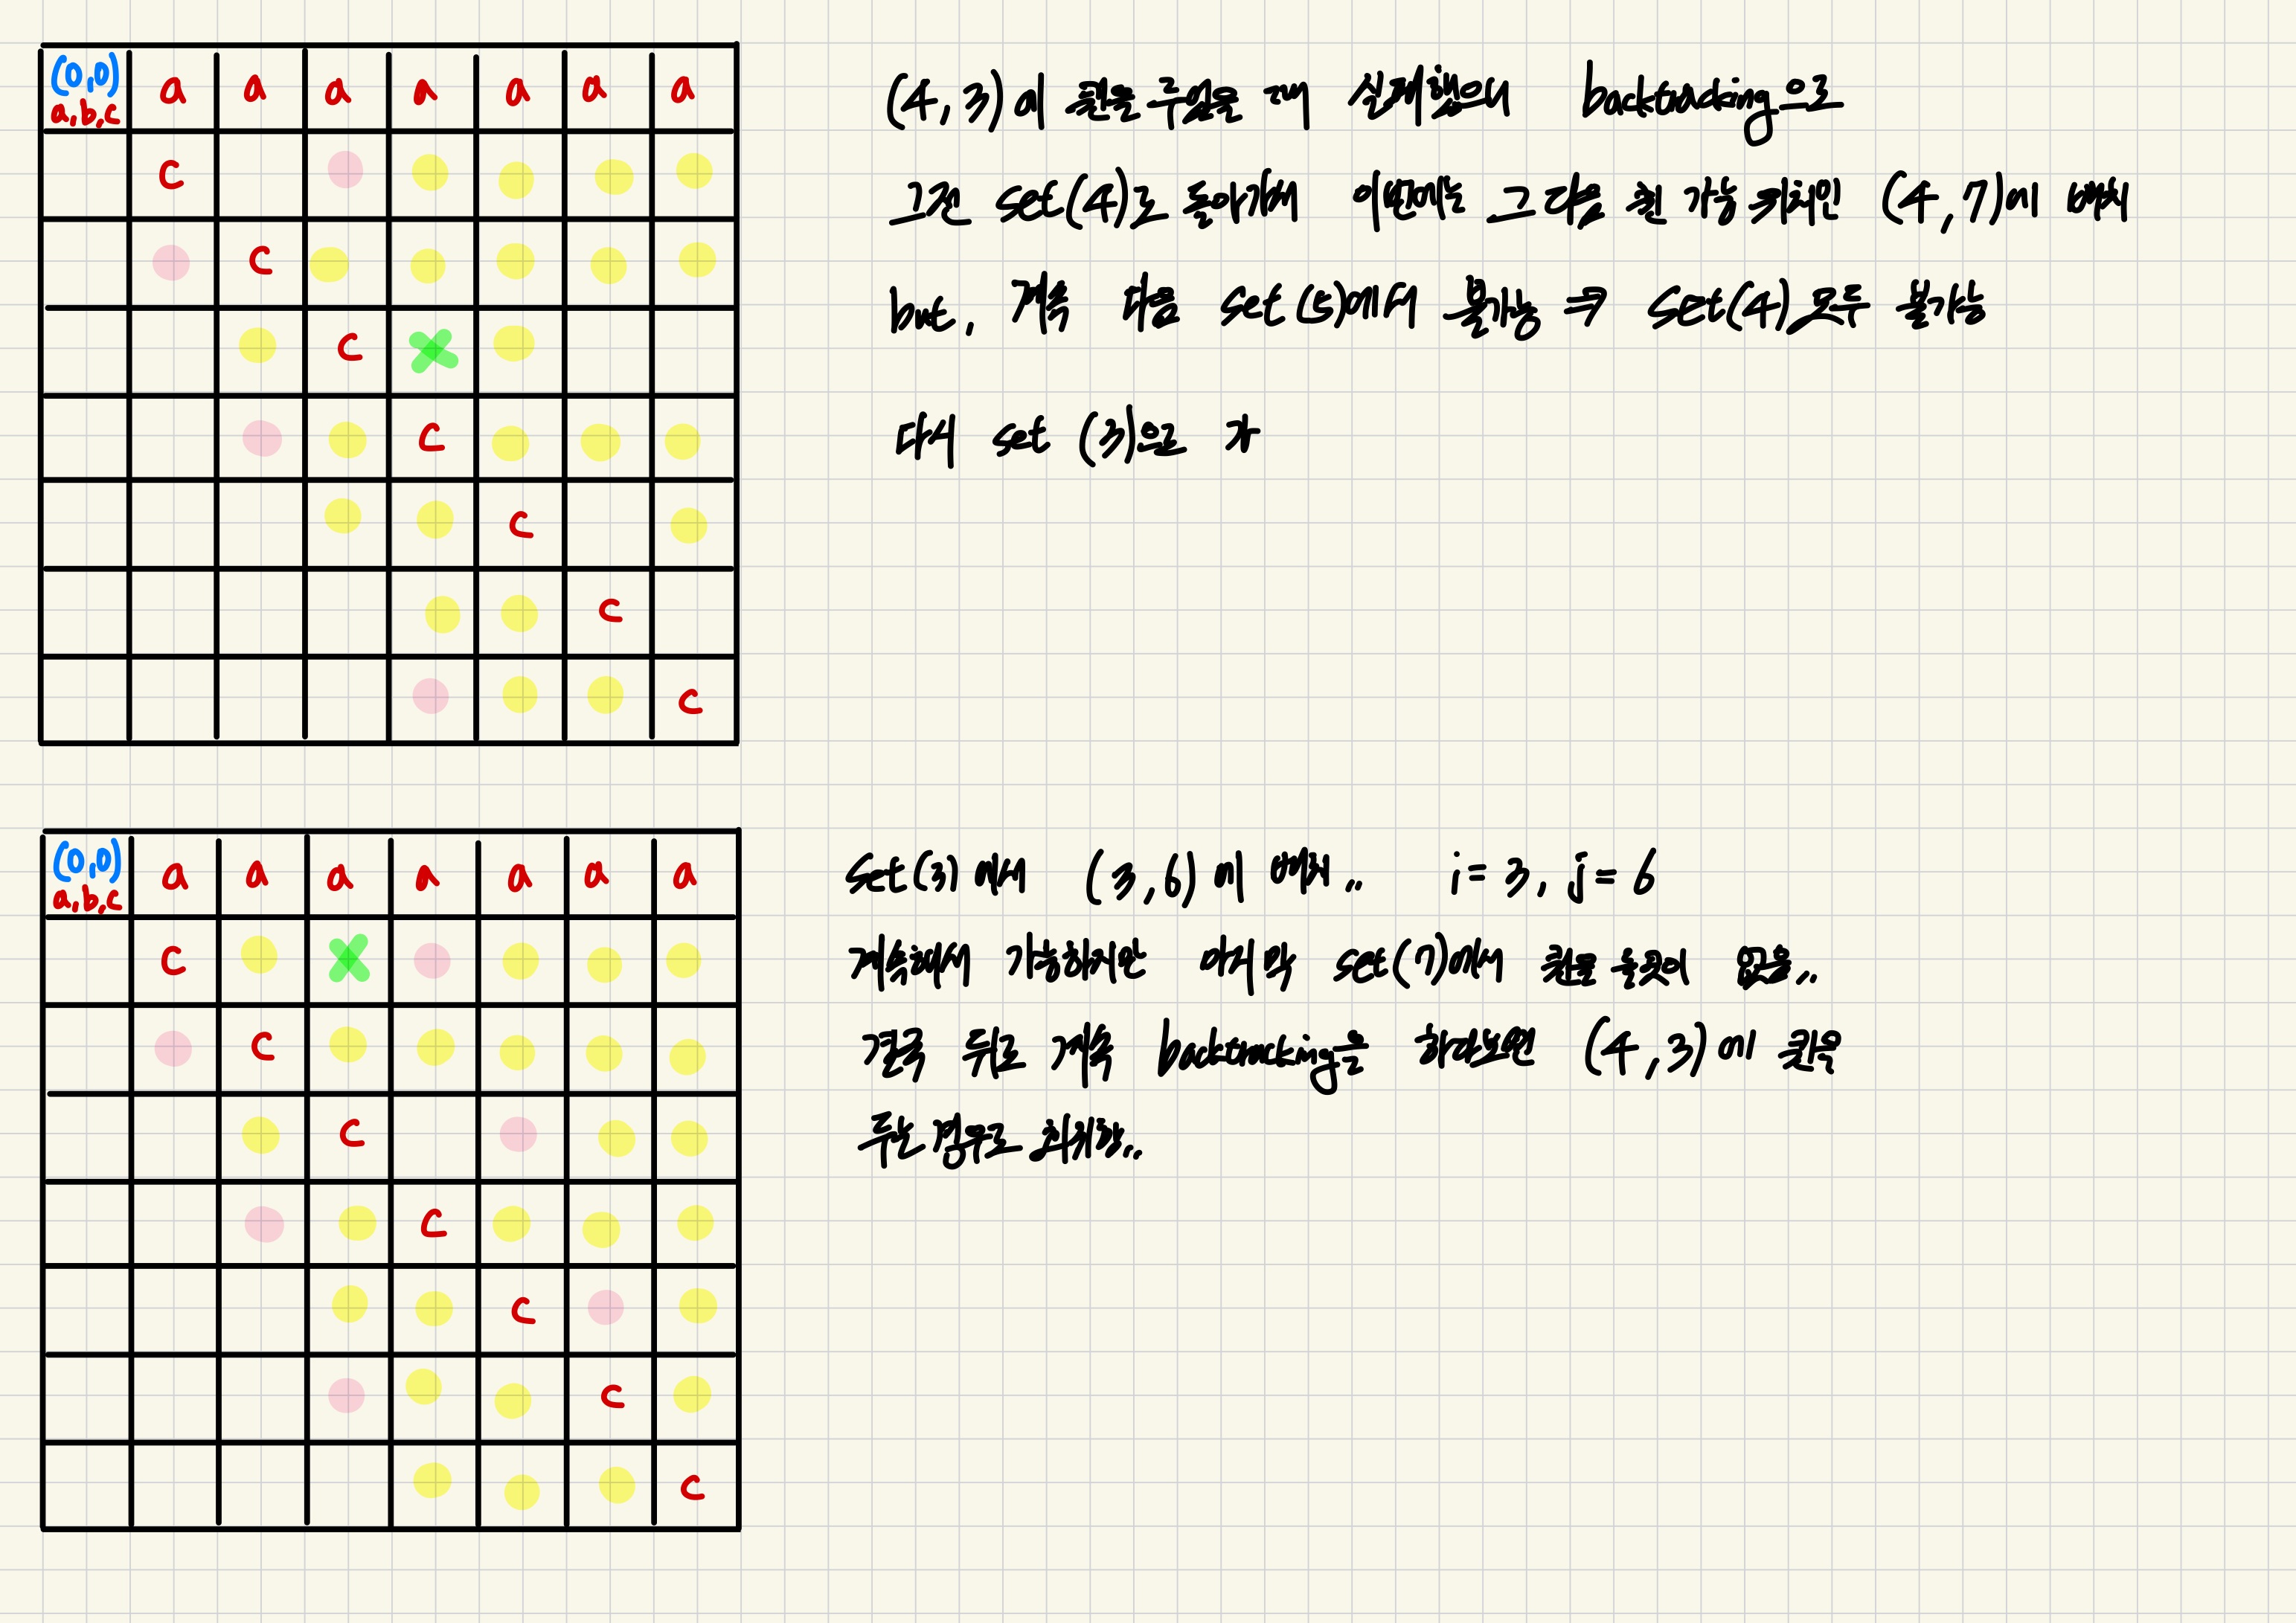 (0,0) a a a a a a a
a,b,c
c
c
c
c
c
c
c
(4,3)에 퀸을 두었을 때 실패했으니 backtracking으로
그전 set(4)로 돌아가서 이번에는 그 다음 퀸 가능 위치인 (4,7)에 배치
but, 계속 다음 set(5)에서 불가능 ⇒ set(4) 모두 불가능
다시 set (3)으로 가
(0,0) a a a a a a a
a,b,c
c
c
c
c
c
c
c
set(3)에서 (3,6)에 배치.. i=3, j=6
계속해서 가능하지만 마지막 set(7)에서 퀸을 놓을곳이 없음..
결국 뒤로 계속 backtracking을 하다보면 (4,3)에 퀸을
두는 경우로 회귀함..